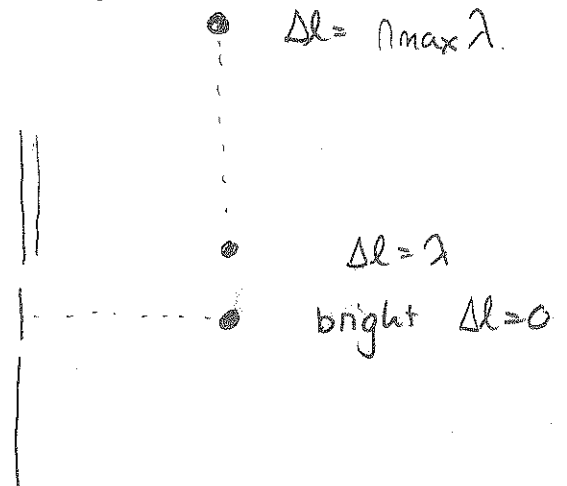 Δl = nmax λ.
Δl = λ
bright Δl = 0